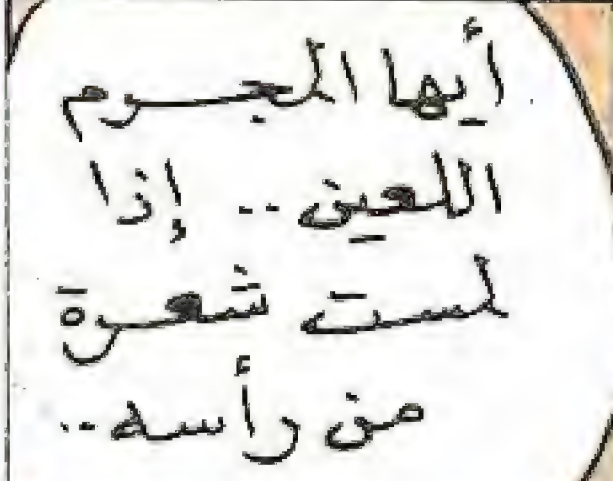 أيها المجرم
اللعين .. إذا
لمست شعرة
من رأسه ..